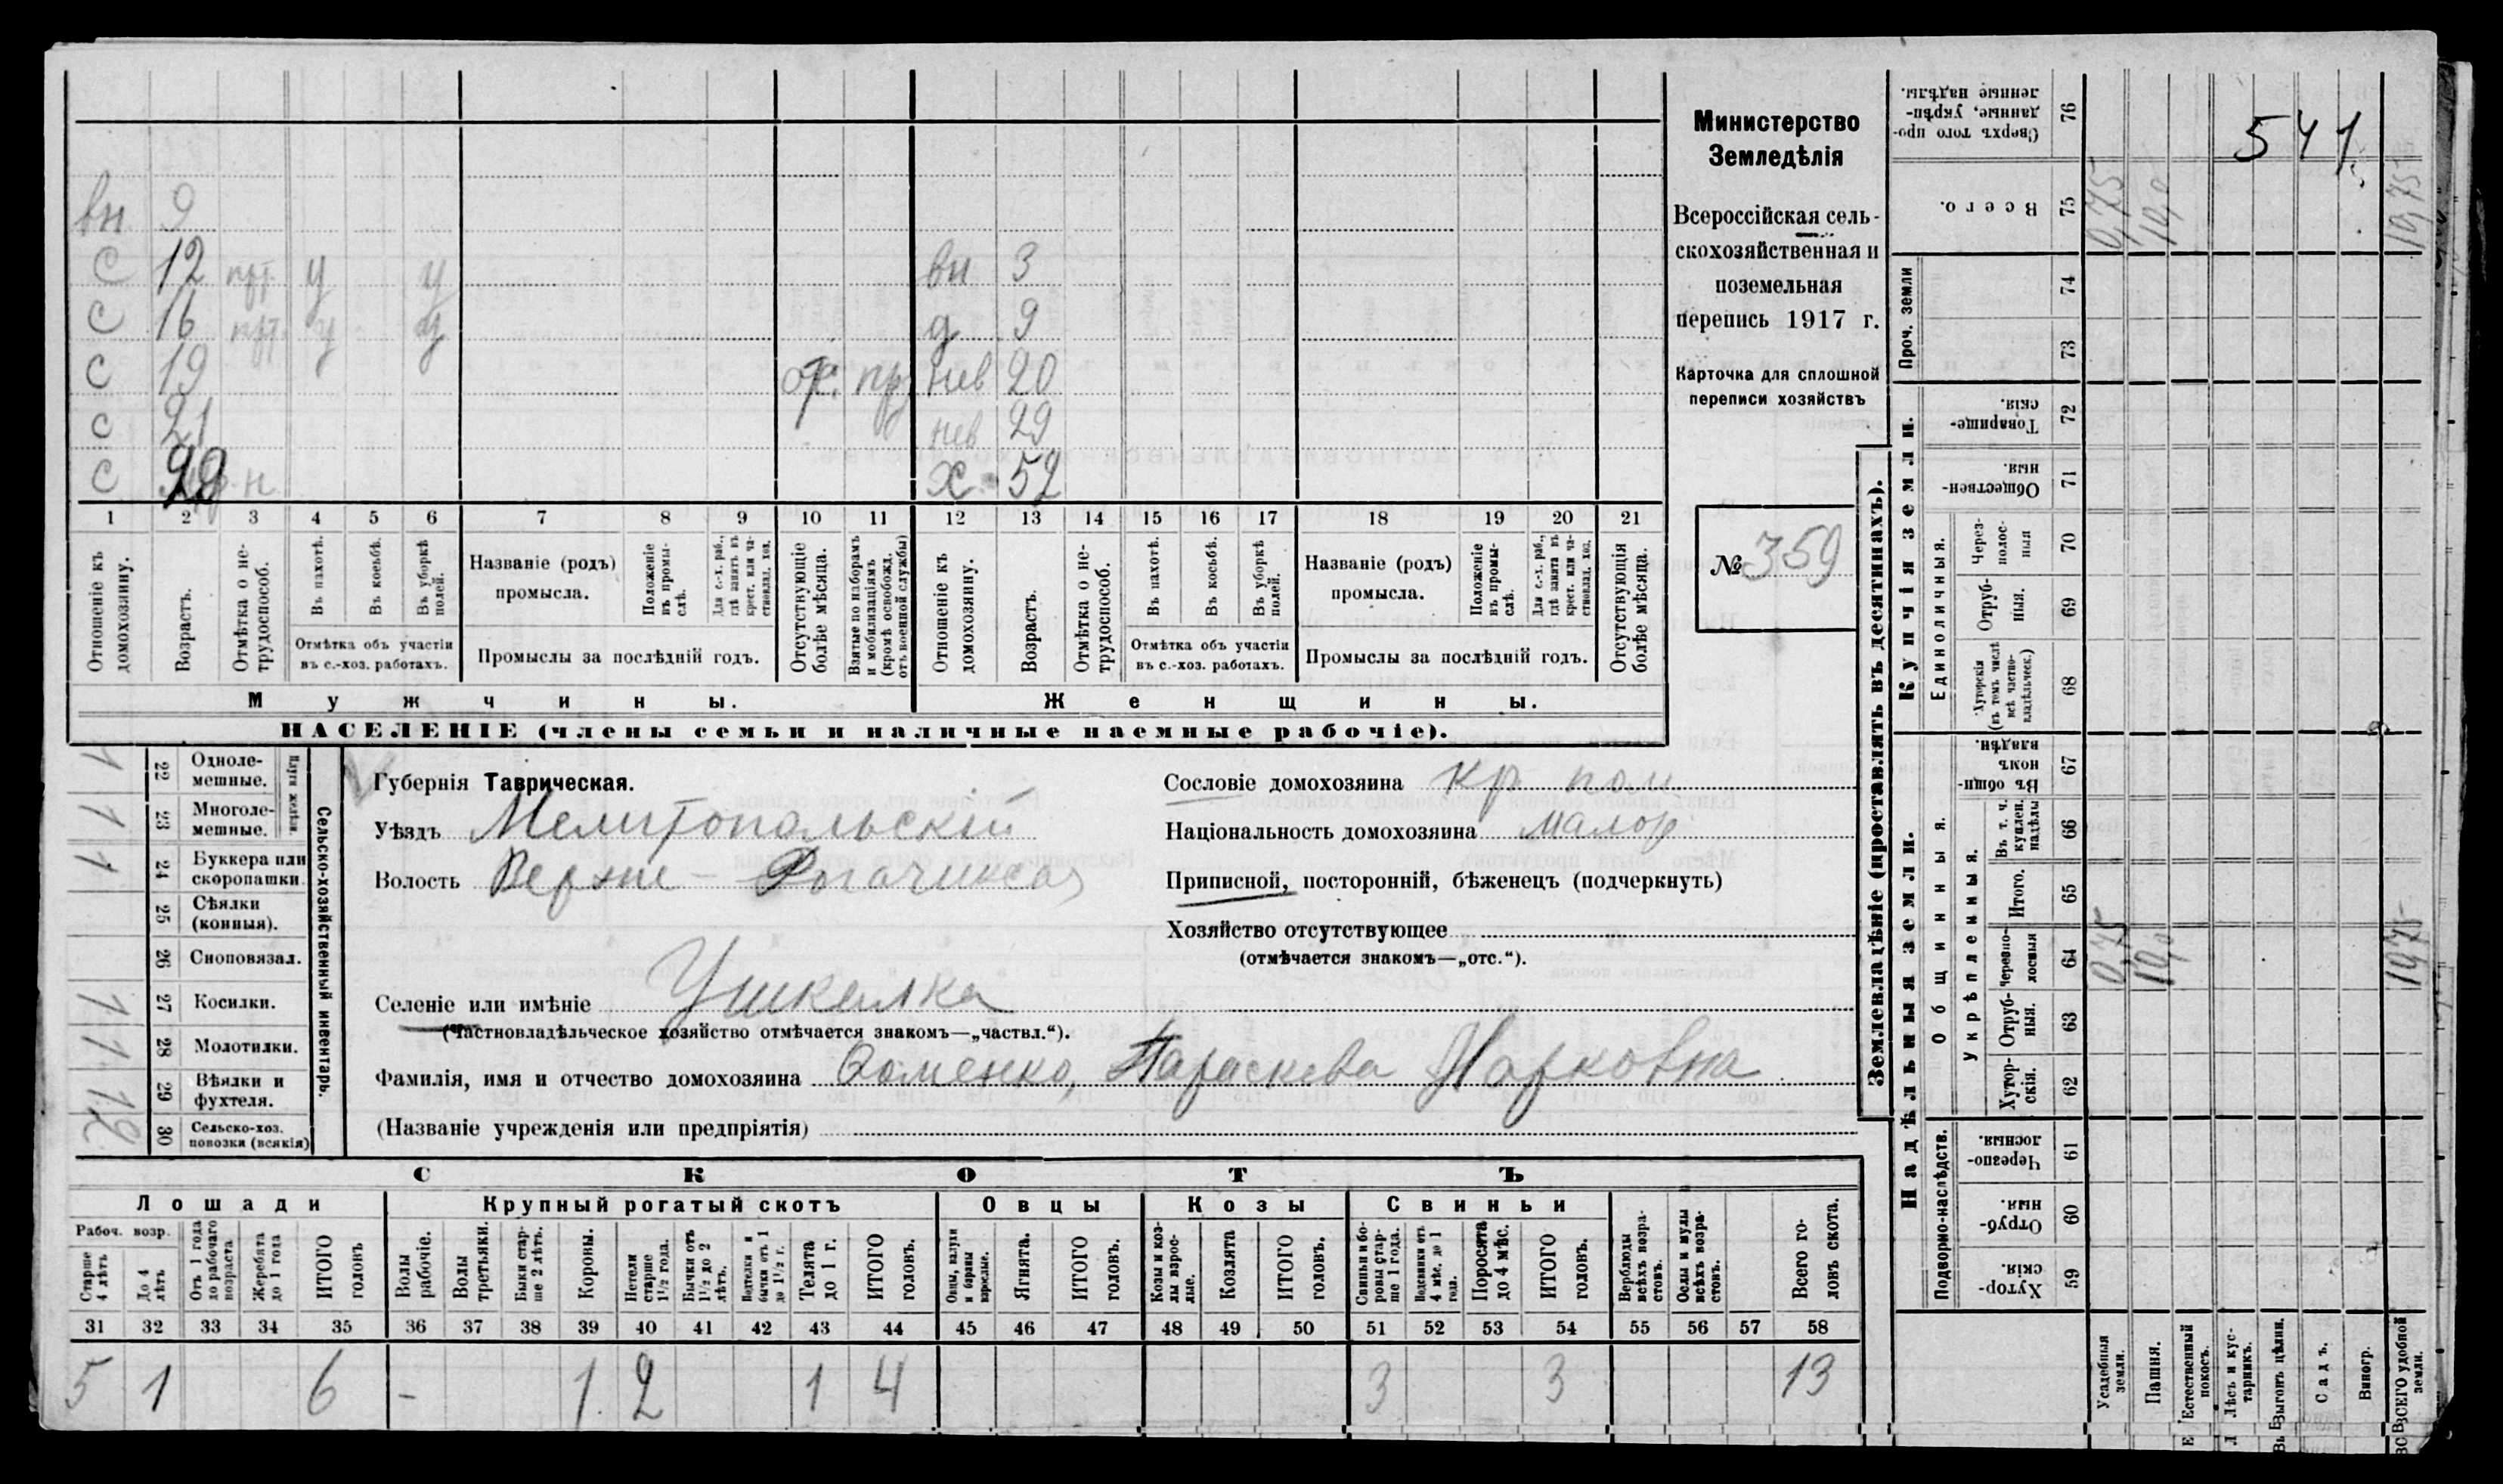 вн 9
С 12 прг. у у вн 3
С 16 прг. у у д 9
С 19 нев 20
С 21 нев 29
С н. х. 52
1 2 3 4 5 6 7 8 9 10 11 12 13 14 15 16 17 18 19 20 21
Отношеніе къ домохозяину.
Возрастъ.
Отмѣтка о нетрудоспособ.
Въ пахотѣ.
Въ косьбѣ.
Въ уборкѣ полей.
Отмѣтка объ участіи
въ с.-хоз. работахъ.
Названіе (родъ)
промысла.
Положеніе въ промыслѣ.
Для с.-х. раб., гдѣ занятъ въ крест. или частновлад. хоз.
Промыслы за послѣдній годъ.
Отсутствующіе болѣе мѣсяца.
Взятые по наборамъ и мобилизаціямъ (кромѣ освобожд. отъ военной службы)
Отношеніе къ домохозяину.
Возрастъ.
Отмѣтка о нетрудоспособ.
Въ пахотѣ.
Въ косьбѣ.
Въ уборкѣ полей.
Отмѣтка объ участіи
въ с.-хоз. работахъ.
Названіе (родъ)
промысла.
Положеніе въ промыслѣ.
Для с.-х. раб., гдѣ занята въ крест. или частновлад. хоз.
Промыслы за послѣдній годъ.
Отсутствующія болѣе мѣсяца.
Мужчины.
Женщины.
НАСЕЛЕНІЕ (члены семьи и наличные наемные рабочіе).
Министерство
Земледѣлія
Всероссійская сель-
скохозяйственная и
поземельная
перепись 1917 г.
Карточка для сплошной
переписи хозяйствъ
№ 359
Сельско-хозяйственный инвентарь.
Плуги желѣзн.
1 22 Одноле-
мешные.
1 23 Многоле-
мешные.
1 24 Буккера или
скоропашки
25 Сѣялки
(конныя).
26 Сноповязал.
1 27 Косилки.
1 28 Молотилки.
1 29 Вѣялки и
фухтеля.
2 30 Сельско-хоз.
повозки (всякія)
Губернія Таврическая.
Уѣздъ Мелитопольскій
Волость Верхне-Рогачинская
Селеніе или имѣніе Ушкалка
(Частновладѣльческое хозяйство отмѣчается знакомъ—„частвл.“).
Фамилія, имя и отчество домохозяина Фоменко, Параскева Марковна
(Названіе учрежденія или предпріятія)
Сословіе домохозяина кр пом
Національность домохозяина малор
Приписной, посторонній, бѣженецъ (подчеркнуть)
Хозяйство отсутствующее
(отмѣчается знакомъ—„отс.“).
СКОТЪ
Лошади Крупный рогатый скотъ Овцы Козы Свиньи
Рабоч. возр.
Старше 4 лѣтъ
До 4 лѣтъ
Отъ 1 года до рабочаго возраста
Жеребята до 1 года
ИТОГО головъ
Волы рабочіе.
Волы третьяки.
Быки старше 2 лѣтъ.
Коровы.
Нетели старше 1½ года.
Бычки отъ 1½ до 2 лѣтъ.
Нетелки и бычки отъ 1 до 1½ г.
Телята до 1 г.
ИТОГО головъ.
Овцы, валухи и бараны взрослые.
Ягнята.
ИТОГО головъ.
Козы и козлы взрослые.
Козлята
ИТОГО головъ.
Свиньи и боровы старше 1 года.
Подсвинки отъ 4 мѣс. до 1 года.
Поросята до 4 мѣс.
ИТОГО головъ.
Верблюды всѣхъ возрастовъ.
Ослы и мулы всѣхъ возрастовъ.
Всего головъ скота.
31 32 33 34 35 36 37 38 39 40 41 42 43 44 45 46 47 48 49 50 51 52 53 54 55 56 57 58
5 1 6 - 1 2 1 4 3 3 13
Землевладѣніе (проставлять въ десятинахъ).
541
Сверхъ того проданные, укрѣпленные надѣлы. 76
Всего. 75 0,75 19,0 19,75
Проч. земли
74
73
Купчія земли.
Товарищескія. 72
Общественныя. 71
Единоличныя.
Черезполосныя 70
Отрубныя. 69
Хуторскія (въ томъ числѣ всѣ частновладѣльческ.) 68
Надѣльныя земли.
Общинныя.
Въ общинномъ владѣн. 67
Укрѣпленныя.
Въ т. ч. куплен. надѣлы 66
Итого. 65
Черезполосныя 64 0,75 19,0 19,75
Отрубныя. 63
Хуторскія. 62
Подворно-наслѣдств.
Черезполосныя. 61
Отрубныя. 60
Хуторскія. 59
Усадебныя земли.
Пашня.
Естественный покосъ.
Лѣсъ и кустарникъ.
Выгонъ цѣлин.
Садъ.
Виногр.
ВСЕГО удобной земли.